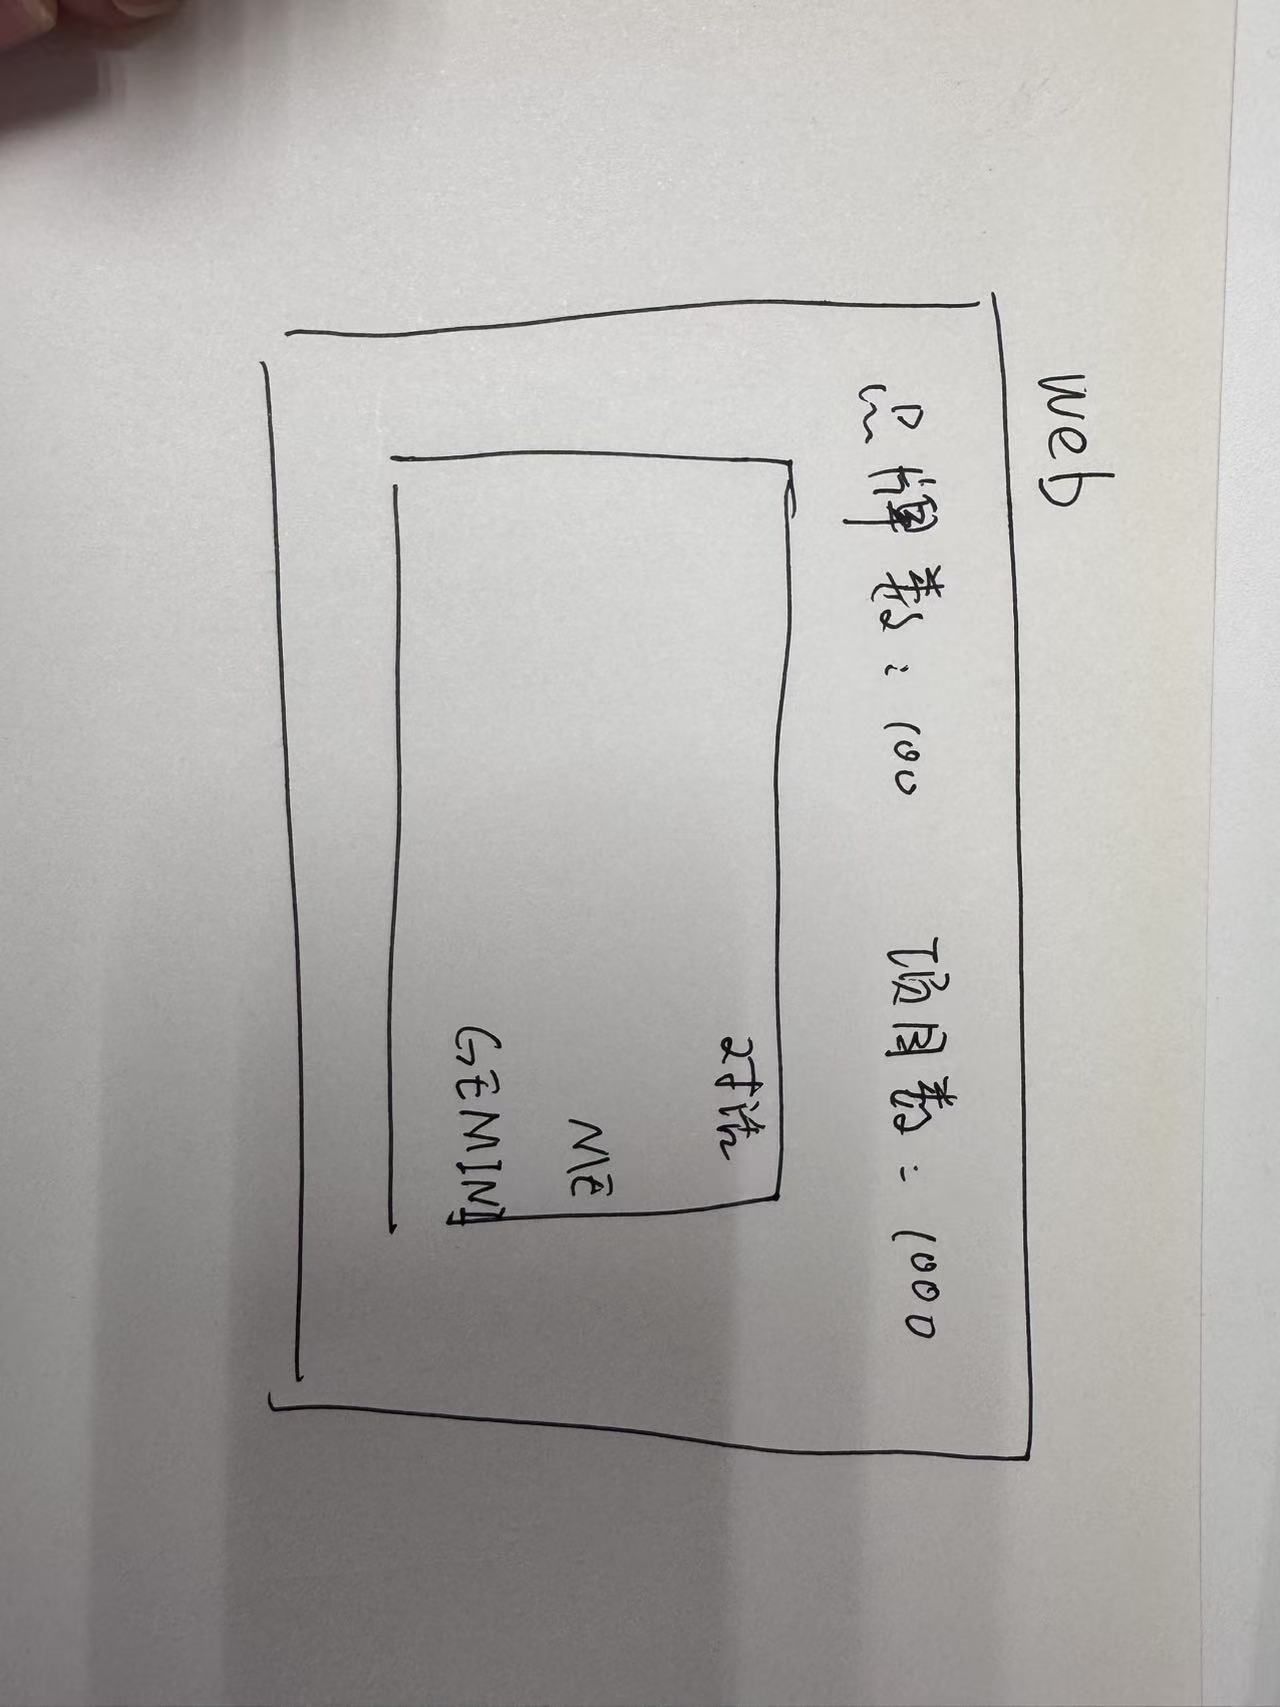 Web
品牌数：100 项目数：1000
对话
ME
GEMINI